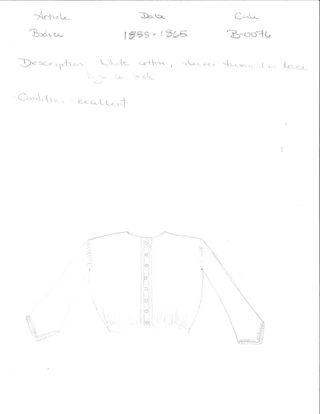 Article Date Code
Bodice 1855-1865 B-0076
Description: White cotton, sleeves trimmed in lace
Condition: excellent